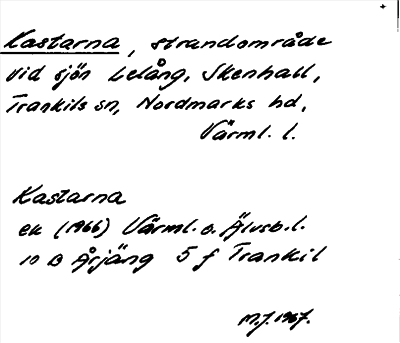 Kastarna, strandområde
vid sjön Lelång, Skenhall,
Trankils sn, Nordmarks hd,
Värml. l.
Kastarna
ek (1966) Värml. o. Älvsb. l.
10 B Årjäng 5 f Trankil
M.J. 1967.